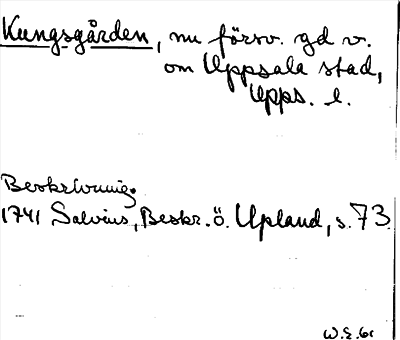 Kungsgården, nu försv. gd v.
om Uppsala stad,
Upps. l.
Beskrivning.
1741 Salvius, Beskr. ö. Upland, s. 73.
W.E. 61